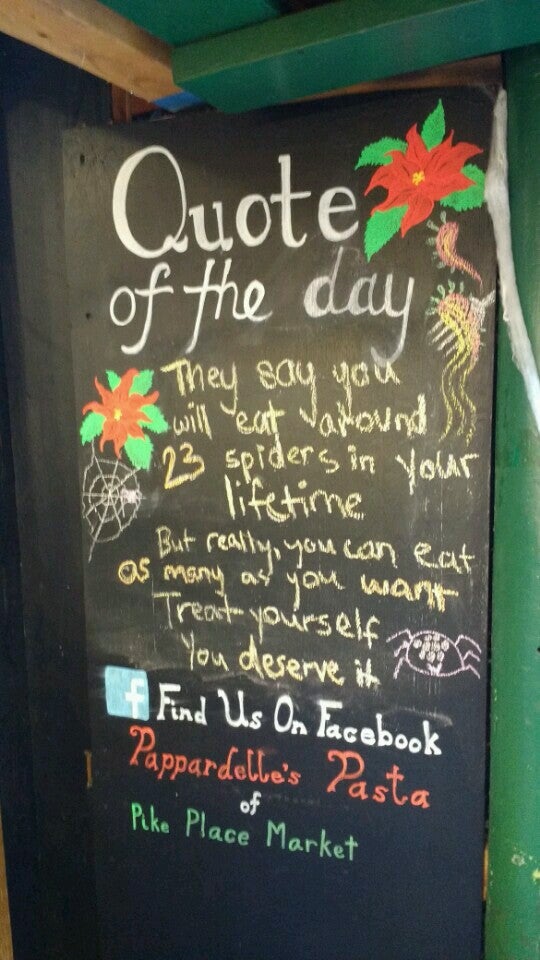 Quote
of the day
They say you
will eat around
23 spiders in your
lifetime
But really, you can eat
as many as you want
Treat yourself
You deserve it
f Find Us On Facebook
Pappardelle's Pasta
of
Pike Place Market